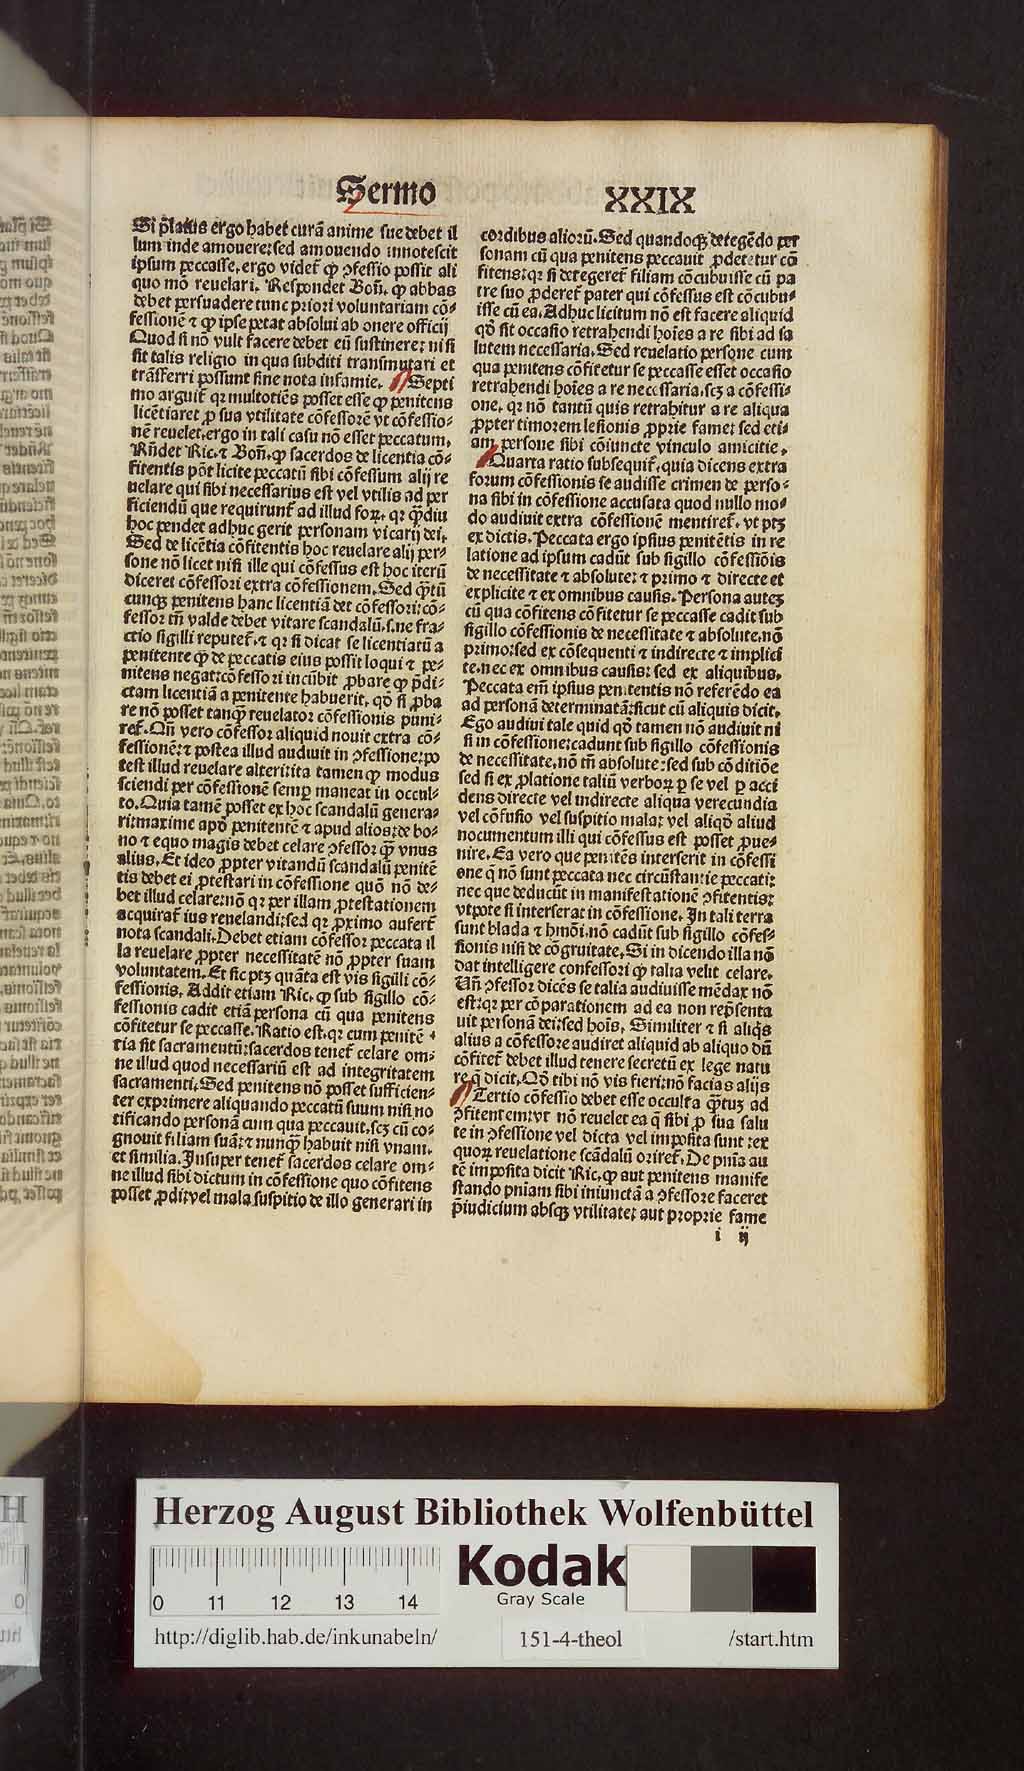 Sermo XXIX
Si p̃latus ergo habet curã anime sue debet il
lum inde amouere: sed amouendo innotescit
ipsum peccasse, ergo videt᷑ ꝙ ꝯfessio possit ali
quo mõ reuelari. Respondet Boñ. ꝙ abbas
debet persuadere tunc priori voluntariam cõ-
fessionẽ ⁊ ꝙ ipse petat absolui ab onere officij
Quod si nõ vult facere debet eũ sustinere: nisi
sit talis religio in qua subditi transmutari et
trãsferri possunt sine nota infamie. Septi
mo arguit᷑ qꝛ multotiẽs posset esse ꝙ penitens
licẽtiaret ꝓ sua vtilitate cõfessorẽ vt cõfessio-
nẽ reuelet. ergo in tali casu nõ esset peccatum.
Rñdet Ric. ⁊ Boñ. ꝙ sacerdos de licentia cõ-
fitentis põt licite peccatũ sibi cõfessum alij re
uelare qui sibi necessarius est vel vtilis ad per
ficiendũ que requirunt᷑ ad illud foꝝ. qꝛ q̃diu
hoc pendet adhuc gerit personam vicarij dei.
Sed de licẽtia cõfitentis hoc reuelare alij per-
sone nõ licet nisi ille qui cõfessus est hoc iterũ
diceret cõfessori extra cõfessionem. Sed q̃tũ
cunqꝫ penitens hanc licentiã det cõfessori: cõ-
fessor tñ valde debet vitare scandalũ. s. ne fra-
ctio sigilli reputet᷑. ⁊ qꝛ si dicat se licentiatũ a
penitente ꝙ de peccatis eius possit loqui ⁊ pe-
nitens negat: cõfessori incũbit ꝓbare ꝙ p̃di-
ctam licentiã a penitente habuerit. qõ si ꝓba
re nõ posset tanꝙ reuelator cõfessionis puni-
ret᷑. Qñ vero cõfessor aliquid nouit extra cõ-
fessionẽ: ⁊ postea illud audiuit in ꝯfessione: po
test illud reuelare alteri: ita tamen ꝙ modus
sciendi per cõfessionẽ semꝑ maneat in occul-
to. Quia tamẽ posset ex hoc scandalũ genera-
ri: maxime apđ penitentẽ ⁊ apud alios: de bo-
no ⁊ equo magis debet celare ꝯfessor ꝙ̃ vnus
alius. Et ideo ꝓpter vitandũ scandalũ penitẽ
tis debet ei ꝓtestari in cõfessione quõ nõ de-
bet illud celare: nõ qꝛ per illam ꝓtestationem
acquirat᷑ ius reuelandi: sed qꝛ ꝓximo aufert᷑
nota scandali. Debet etiam cõfessor peccata il
la reuelare ꝓpter necessitatẽ nõ ꝓpter suam
voluntatem. Et sic ptꝫ quãta est vis sigilli cõ-
fessionis. Addit etiam Ric. ꝙ sub sigillo cõ-
fessionis cadit etiã persona cũ qua penitens
cõfitetur se peccasse. Ratio est. qꝛ cum penitẽ
tia sit sacramentũ: sacerdos tenet᷑ celare om-
ne illud quod necessariũ est ad integritatem
sacramenti: Sed penitens nõ posset sufficien-
ter exprimere aliquando peccatũ suum nisi no
tificando personã cum qua peccauit. scꝫ cũ co-
gnouit filiam suã: ⁊ nunꝙ̃ habuit nisi vnam.
et similia. Insuper tenet᷑ sacerdos celare om-
ne illud sibi dictum in cõfessione quo cõfitens
posset ꝓdi: vel mala suspitio de illo generari in
cordibus alioꝛũ. Sed quandoqꝫ detegẽdo per
sonam cũ qua penitens peccauit ꝓdetetur cõ
fitens: qꝛ si detegeret᷑ filiam cõcubuisse cũ pa
tre suo ꝓderet᷑ pater qui cõfessus est cõcubu-
isse cũ ea. Adhuc licitum nõ est facere aliquid
qđ sit occasio retrahendi hoĩes a re sibi ad sa
lutem necessaria. Sed reuelatio persone cum
qua penitens cõfitetur se peccasse esset occasio
retrahendi hoĩes a re necessaria. scꝫ a cõfessi-
one. qꝛ nõ tantũ quis retrahitur a re aliqua
ꝓpter timorem lesionis ꝓprie fame: sed eti-
am persone sibi cõiuncte vinculo amicitie.
Quarta ratio subsequit᷑. quia dicens extra
forum cõfessionis se audisse crimen de perso-
na sibi in cõfessione accusata quod nullo mo-
do audiuit extra cõfessionẽ mentiret᷑. vt ptꝫ
ex dictis. Peccata ergo ipsius penitẽtis in re
latione ad ipsum cadũt sub sigillo cõfessiõis
de necessitate ⁊ absolute: ⁊ primo ⁊ directe et
explicite ⁊ ex omnibus causis. Persona auteꝫ
cũ qua cõfitens cõfitetur se peccasse cadit sub
sigillo cõfessionis de necessitate ⁊ absolute. nõ
primo: sed ex cõsequenti ⁊ indirecte ⁊ implici
te. nec ex omnibus causis: sed ex aliquibus.
Peccata em̃ ipsius penitentis nõ referẽdo ea
ad personã determinatã: sicut cũ aliquis dicit.
Ego audiui tale quid qđ tamen nõ audiuit ni
si in cõfessione: cadunt sub sigillo cõfessionis
de necessitate. nõ tñ absolute: sed sub cõditiõe
sed si ex ꝓlatione taliũ verboꝝ ꝑ se vel ꝑ acci
dens directe vel indirecte aliqua verecundia
vel cõfusio vel suspitio mala: vel aliqđ aliud
nocumentum illi qui cõfessus est posset ꝓue-
nire. Ea vero que penitẽs interserit in cõfessi
one q̃ nõ sunt peccata nec circũstantie peccati:
nec que deducũt in manifestationẽ ꝯfitentis:
vtpote si interserat in cõfessione. In tali terra
sunt blada ⁊ hmõi. nõ cadũt sub sigillo cõfes-
sionis nisi de cõgruitate. Si in dicendo illa nõ
dat intelligere confessori ꝙ talia velit celare.
Uñ ꝯfessor dicẽs se talia audiuisse mẽdax nõ
est: qꝛ per cõparationem ad ea non rep̃senta
uit personã dei: sed hoĩs. Similiter ⁊ si aliq̃s
alius a cõfessore audiret aliquid ab aliquo dũ
cõfitet᷑ debet illud tenere secretũ ex lege natu
re q̃ dicit. Qđ tibi nõ vis fieri: nõ facias alijs
Tertio cõfessio debet esse occulta q̃tuꝫ ad
ꝯfitentem: vt nõ reuelet ea q̃ sibi ꝓ sua salu
te in ꝯfessione vel dicta vel imposita sunt: ex
quoꝝ reuelatione scãdalũ oriret᷑. De pñia au
tẽ imposita dicit Ric. ꝙ aut penitens manife
stando pniam sibi iniunctã a ꝯfessore faceret
p̃iudicium absqꝫ vtilitate: aut proprie fame
i ij
Herzog August Bibliothek Wolfenbüttel
Kodak
Gray Scale
0 11 12 13 14
http://diglib.hab.de/inkunabeln/ 151-4-theol /start.htm